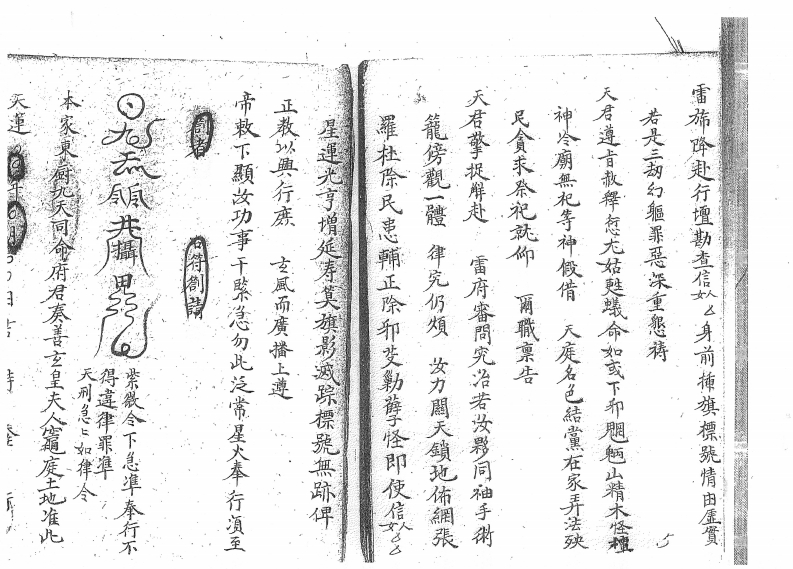 雷旆降赴行壇勘查信女人厶厶身前揷旗標號情由虛實
若是三劫幻軀罪惡深重懇禱
天君遵旨赦釋愆尤姑甦蟻命如或下邪魍魎山精木怪壇
神冷廟無祀等神假借　天庭名色結黨在家弄法殃
民貪求祭祀就仰　爾職禀告
天君擎捉解赴　雷府審問究治若汝夥同袖手術
籠傍觀一體　律究仍煩　汝力關天鎖地佈網張
羅杜除民患輔正除邪芟勦孽怪即使信女人厶厶
星運光亨增延寿筭旗影滅踪標號無跡俾
正教以興行庶　玄風而廣播上遵
帝敕下顯汝功事干緊急勿此泛常星火奉行湏至
劄者
右符劄請
攝
紫微令下急準奉行不
得違律罪準
天刑急急如律令
本家東廚九天司命府君奏善玄皇夫人竈庭土地准此
天運　年　月　日吉時
5